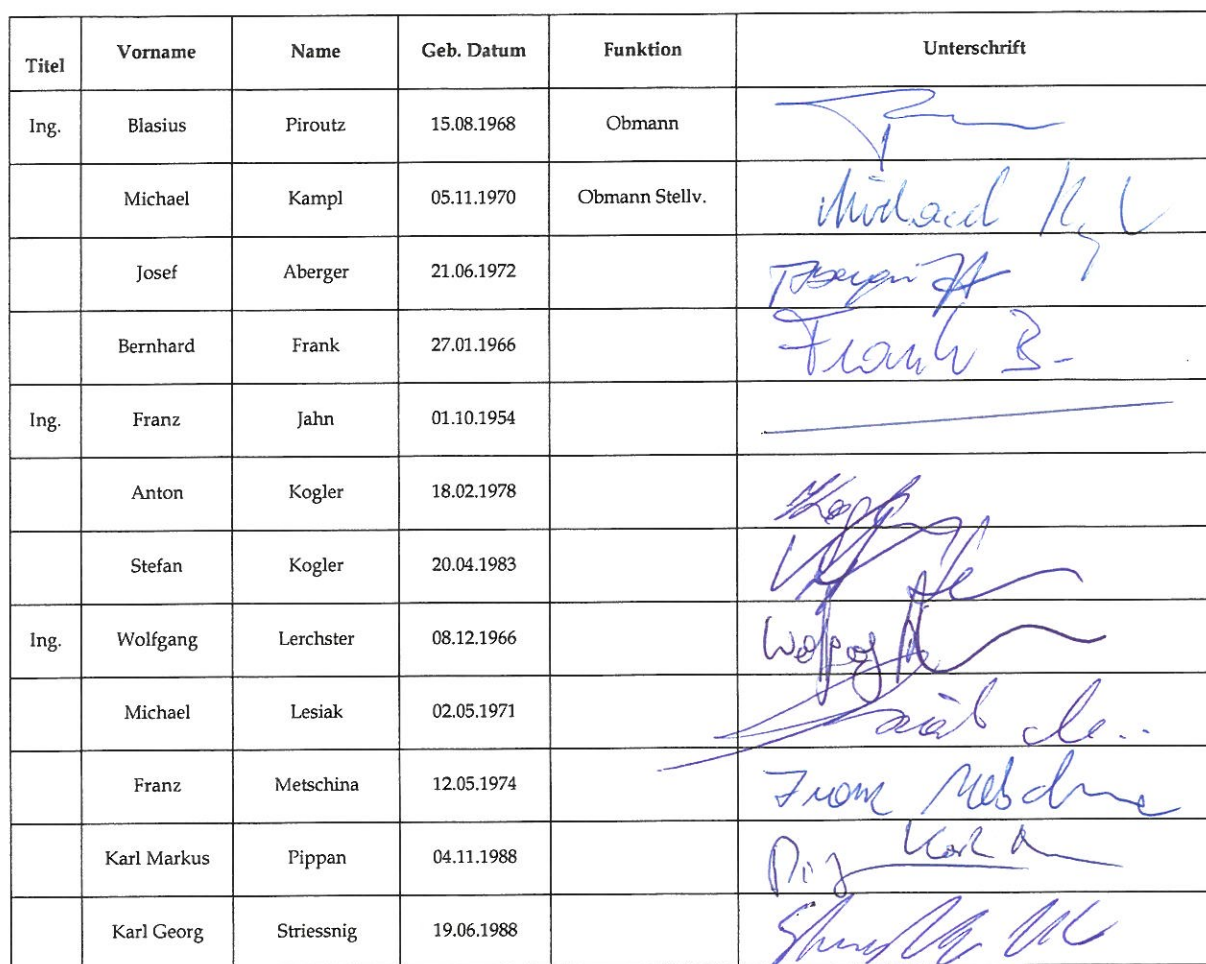 Titel Vorname Name Geb. Datum Funktion Unterschrift
Ing. Blasius Piroutz 15.08.1968 Obmann
Michael Kampl 05.11.1970 Obmann Stellv. Michael
Josef Aberger 21.06.1972
Bernhard Frank 27.01.1966 Frank B-
Ing. Franz Jahn 01.10.1954
Anton Kogler 18.02.1978
Stefan Kogler 20.04.1983
Ing. Wolfgang Lerchster 08.12.1966
Michael Lesiak 02.05.1971
Franz Metschina 12.05.1974 Franz
Karl Markus Pippan 04.11.1988 Karl
Karl Georg Striessnig 19.06.1988